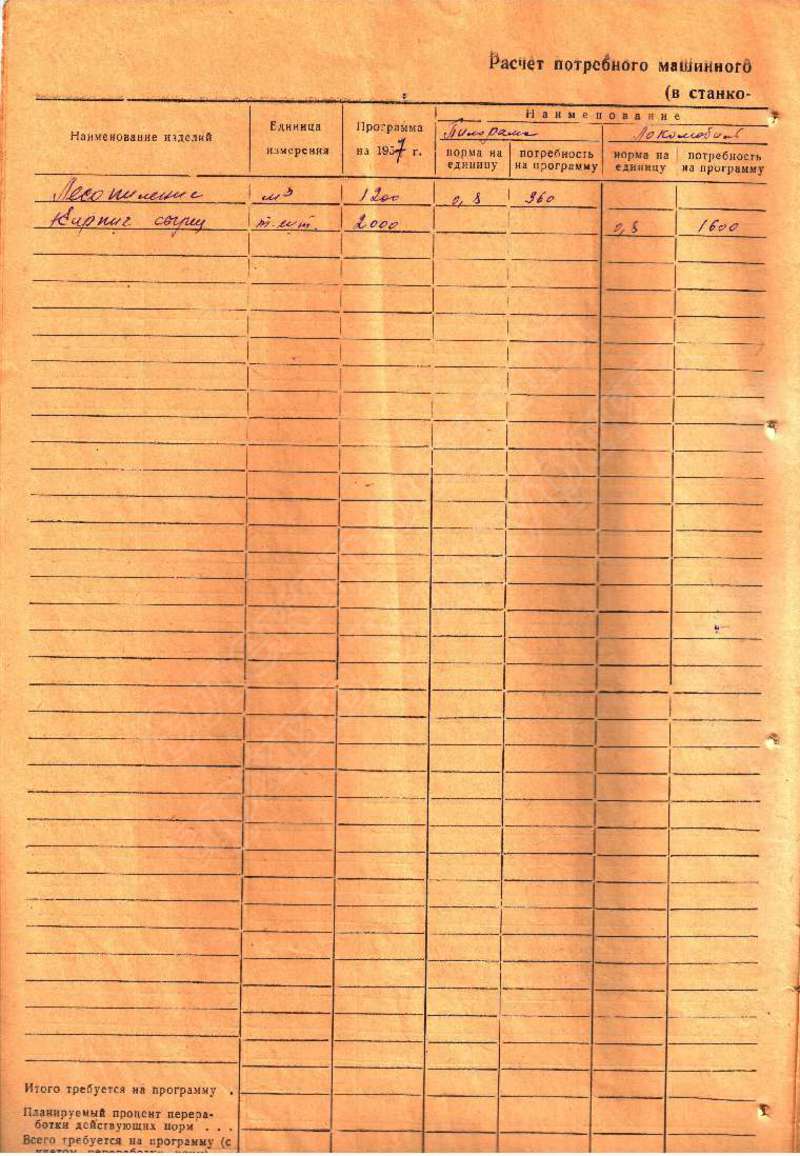 Расчет потребного машинного
(в станко-
Наименование изделий
Единица измерения
Программа на 1957 г.
Наименование
Пилорама
Локомобиль
норма на единицу
потребность на программу
норма на единицу
потребность на программу
Лесопиление м³ 1200 0,8 960
Кирпич сырец т-шт. 2000 0,8 1600
Итого требуется на программу .
Планируемый процент перера-
ботки действующих норм . . .
Всего требуется на программу (с